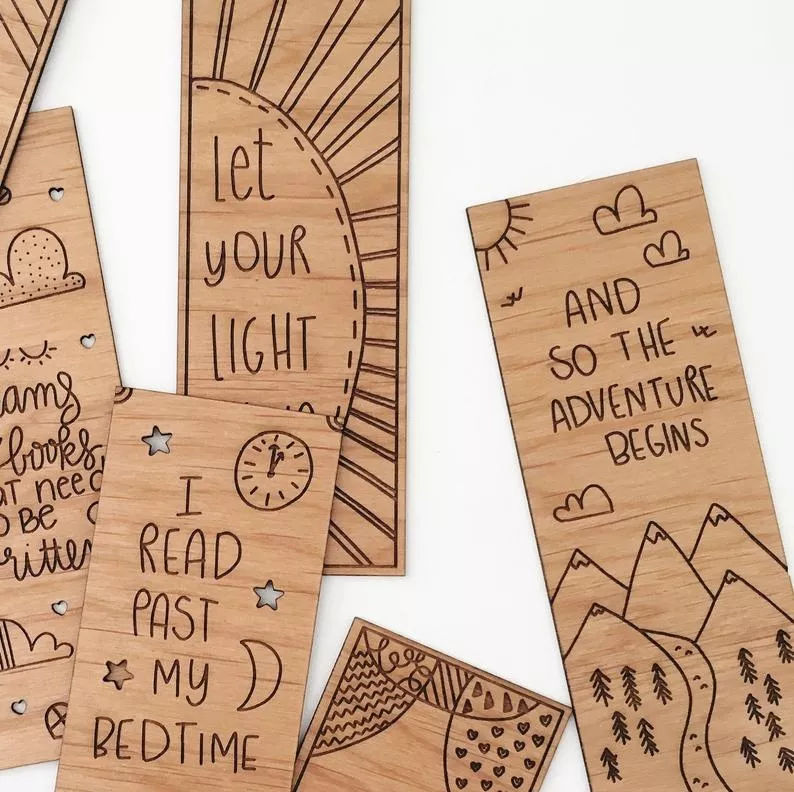 Let
YOUR
LIGHT
AND
SO THE
ADVENTURE
BEGINS
books
NEED
BE
I
READ
PAST
MY
BEDTIME